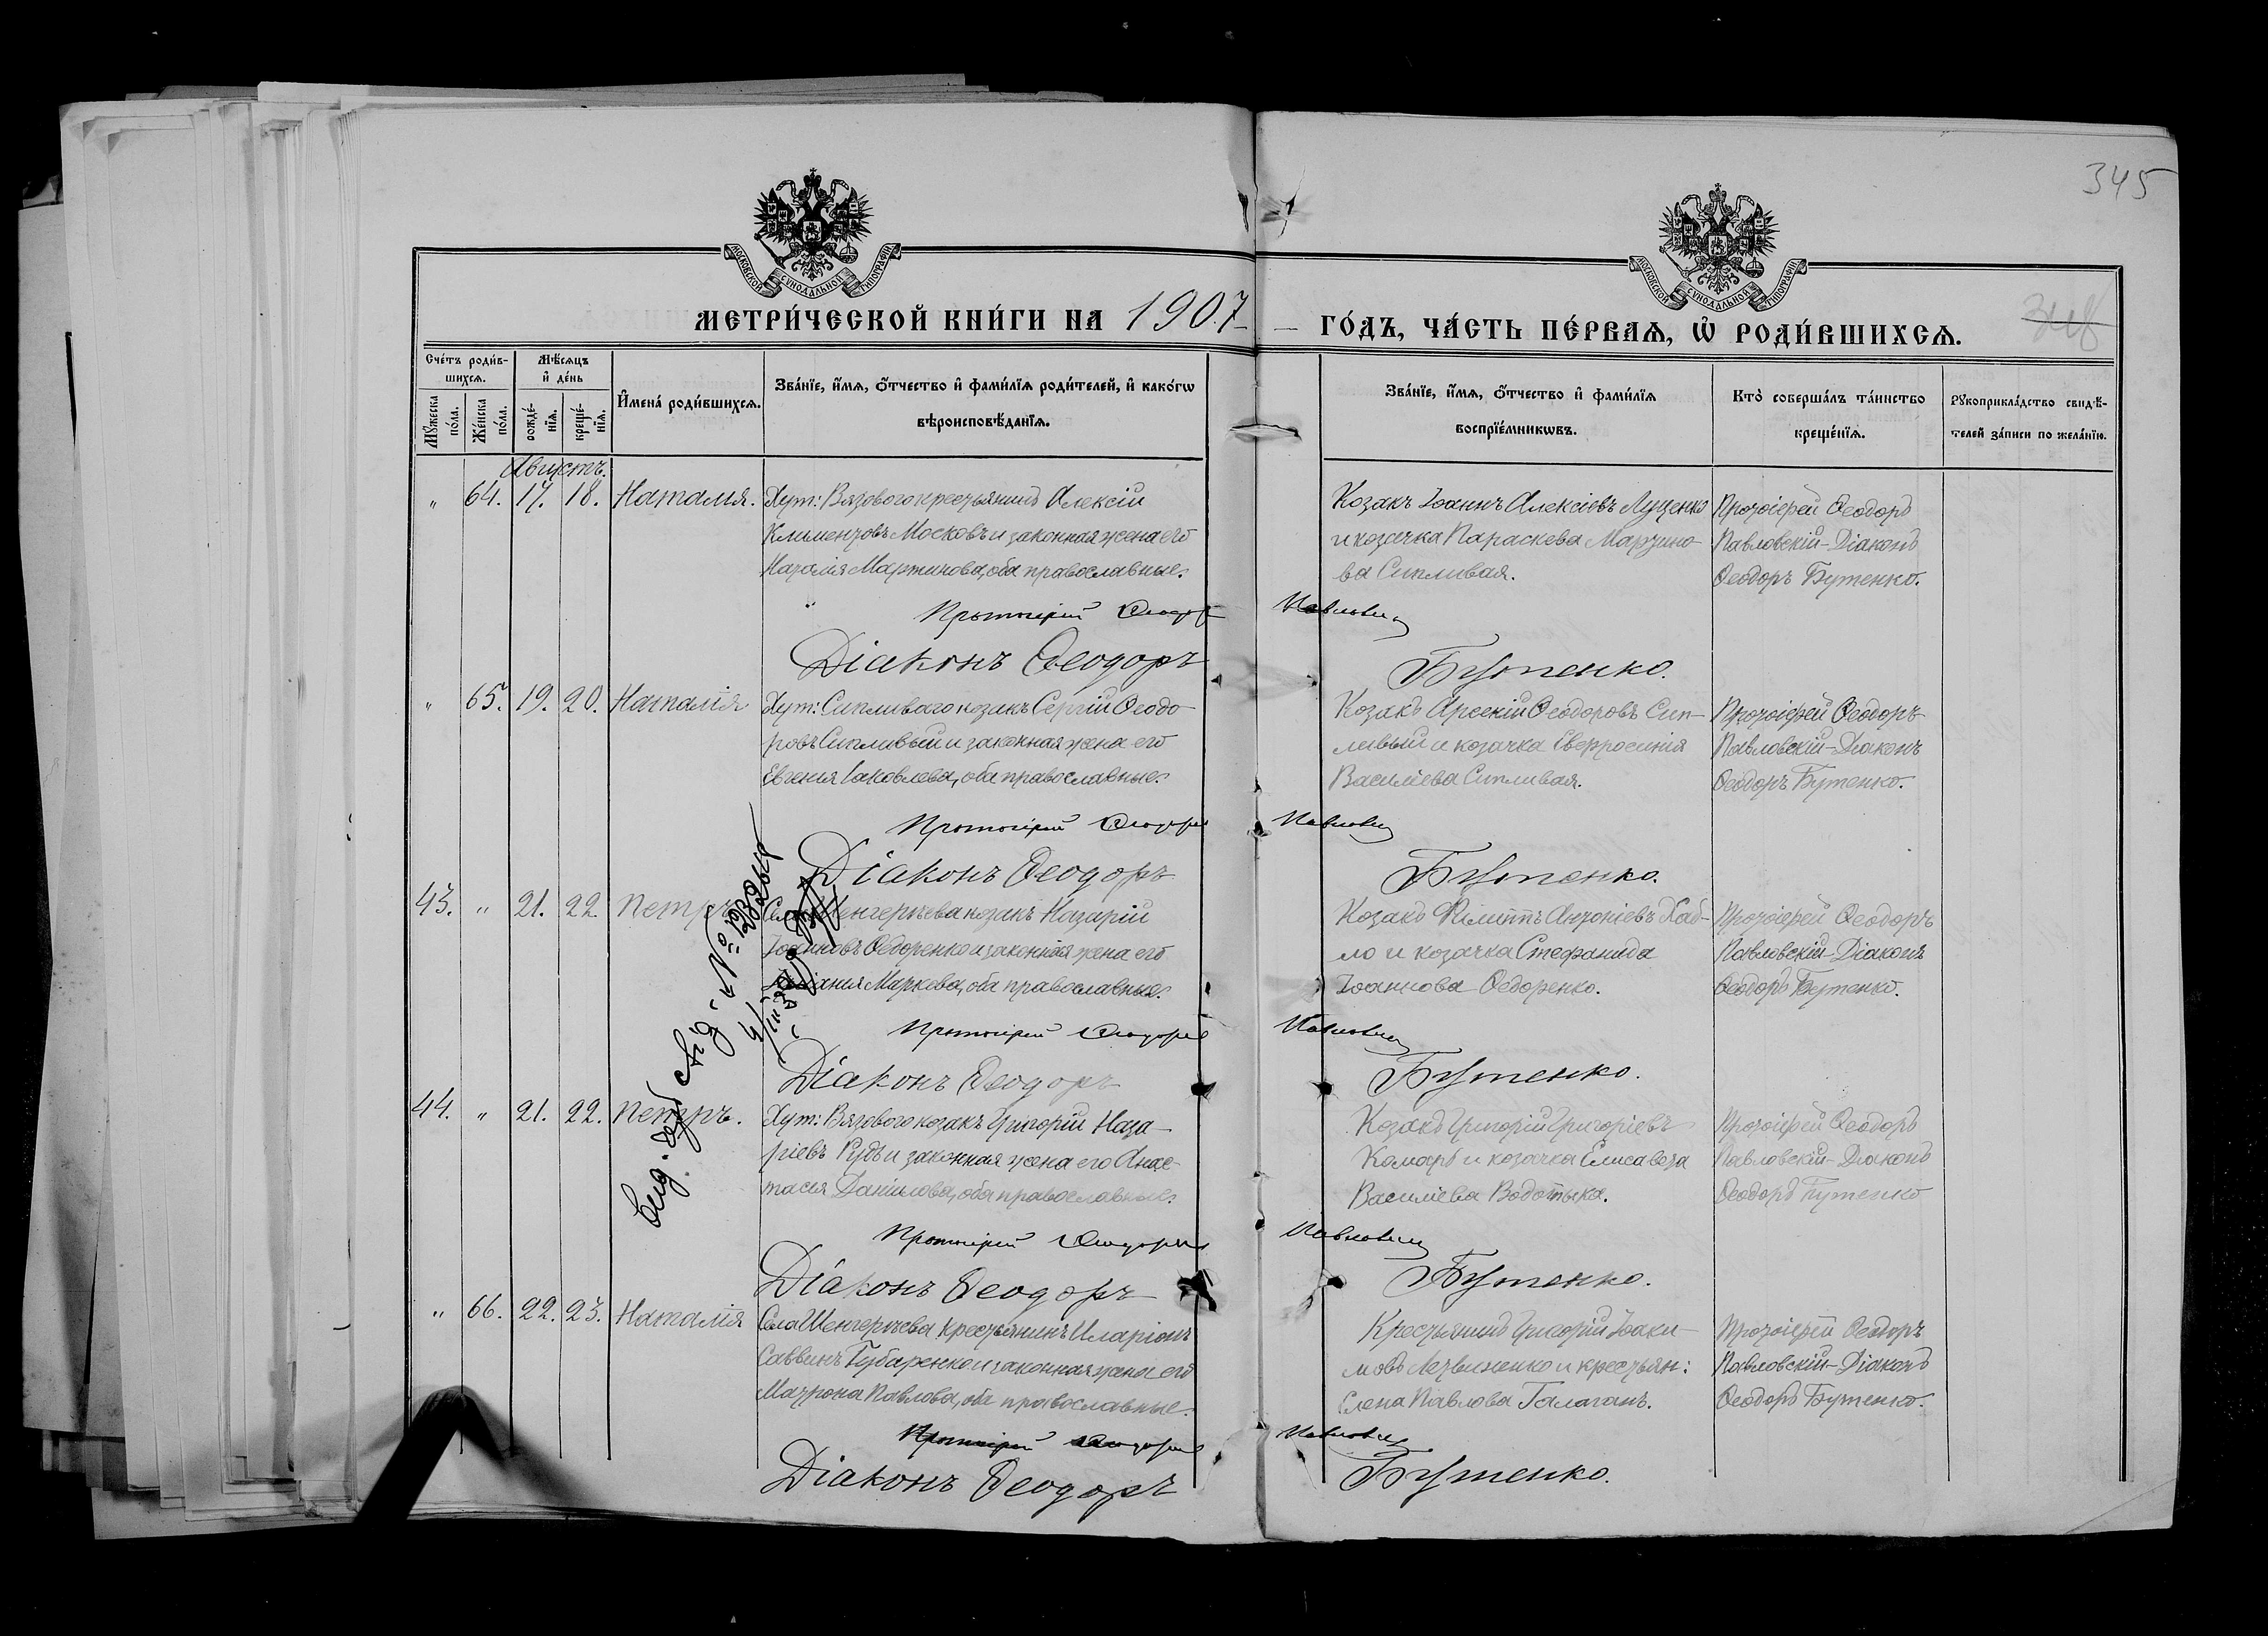 345
МОСКОВСКОЙ СѴНОДАЛЬНОЙ ТИПОГРАФІИ
МОСКОВСКОЙ СѴНОДАЛЬНОЙ ТИПОГРАФІИ
МЕТРИ́ЧЕСКОЙ КНИ́ГИ НА 1907
ГО́ДЪ, ЧА́СТЬ ПЕ́РВАѦ, Ѡ҆ РОДИ́ВШИХСѦ.
Сче́тъ роди́в-
шихсѧ.
Мꙋ́жеска по́ла.
Же́нска по́ла.
Мѣ́сѧцъ и҆ де́нь
рожде́-нїѧ.
креще́-нїѧ.
И҆мена̀ роди́вшихсѧ.
Зва́нїе, и҆́мѧ, ѻ҆́тчество и҆ фами́лїѧ роди́телей, и҆ како́гѡ
вѣроисповѣ́данїѧ.
Зва́нїе, и҆́мѧ, ѻ҆́тчество и҆ фами́лїѧ
воспрїе́мникѡвъ.
Кто̀ соверша́лъ та́инство
креще́нїѧ.
Рꙋкоприкла́дство свидѣ́-
телей за́писи по жела́нїю.
Августъ.
" 64. 17. 18. Наталія. Хут: Вязового крестьянинъ Алексій
Климентовъ Московъ и законная жена его
Наталія Мартинова, оба православные.
Козакъ Іоаннъ Алексіевъ Луценко
и козачка Параскева Мартино-
ва Сипливая.
Протоіерей Ѳеодоръ
Павловскій-Діаконъ
Ѳеодоръ Бутенко.
Протоіерей Ѳеодоръ Павловскій
Діаконъ Ѳеодоръ Бутенко.
" 65. 19. 20. Наталія Хут: Сипливаго козакъ Сергій Ѳеодо-
ровъ Сипливый и законная жена его
Евгенія Іаковлева, оба православные.
Козакъ Арсеній Ѳеодоровъ Сип-
ливый и козачка Евфросинія
Василіева Сипливая.
Протоіерей Ѳеодоръ
Павловскій-Діаконъ
Ѳеодоръ Бутенко.
Протоіерей Ѳеодоръ Павловскій
Діаконъ Ѳеодоръ Бутенко.
43. " 21. 22. Петръ Села Шенгеріева козакъ Назарій
Іоанновъ Ѳедоренко и законная жена его
Маркева, оба православные.
Козакъ Филиппъ Антоніевъ Хаб-
ло и козачка Стефанида
Іоаннова Ѳедоренко.
Протоіерей Ѳеодоръ
Павловскій-Діаконъ
Ѳеодоръ Бутенко.
Протоіерей Ѳеодоръ Павловскій
Діаконъ Ѳеодоръ Бутенко.
44. " 21. 22. Петръ. Хут: Вязового козакъ Григорій Наза-
ріевъ Рудъ и законная жена его Анас-
тасія Даніилова, оба православные.
Козакъ Григорій Григоріевъ
Комаръ и козачка Елисавета
Василіева Водотыка.
Протоіерей Ѳеодоръ
Павловскій-Діаконъ
Ѳеодоръ Бутенко
Протоіерей Ѳеодоръ Павловскій
Діаконъ Ѳеодоръ Бутенко.
" 66. 22. 23. Наталія Села Шенгеріева крестьянинъ Иларіонъ
Саввинъ Губаренко и законная жена его
Матрона Павлова, оба православные.
Крестьянинъ Григорій Іоаки-
мовъ Литвиненко и крестьян:
Елена Павлова Галаганъ.
Протоіерей Ѳеодоръ
Павловскій-Діаконъ
Ѳеодоръ Бутенко.
Протоіерей Ѳеодоръ Павловскій
Діаконъ Ѳеодоръ Бутенко.